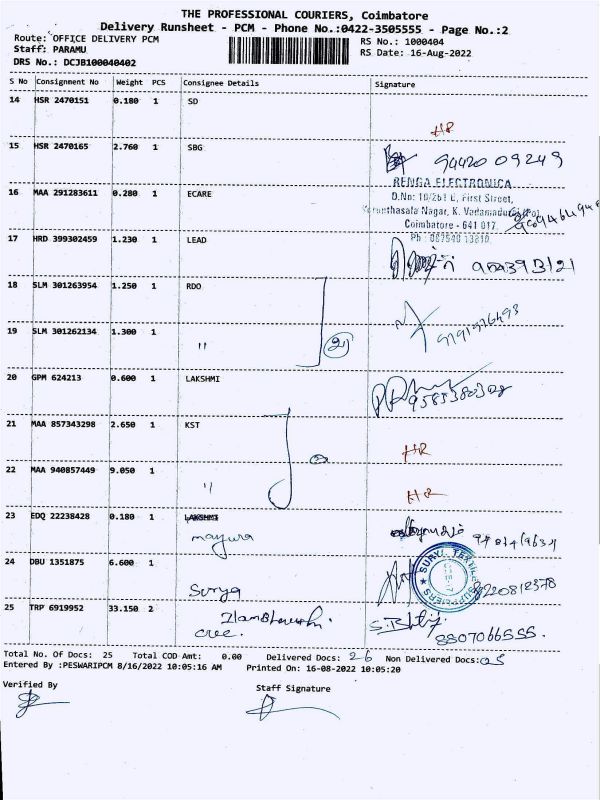 THE PROFESSIONAL COURIERS, Coimbatore
Delivery Runsheet - PCM - Phone No.:0422-3505555 - Page No.:2
Route: OFFICE DELIVERY PCM
RS No.: 1000404
Staff: PARAMU
RS Date: 16-Aug-2022
DRS No.: DCJB100040402
S No Consignment No Weight PCS Consignee Details Signature
14 HSR 2470151 0.180 1 SD
HR
15 HSR 2470165 2.760 1 SBG
94420 09249
RENGA ELECTRONICA
16 MAA 291283611 0.280 1 ECARE
D.No: 10/261 E, First Street,
Nagar, K. Vadamadurai
Coimbatore - 641 017.
17 HRD 399302459 1.230 1 LEAD
18 SLM 301263954 1.250 1 RDO
19 SLM 301262134 1.300 1 "
2
20 GPM 624213 0.600 1 LAKSHMI
21 MAA 857343298 2.650 1 KST
HR
22 MAA 940857449 9.050 1 "
HR
23 EDQ 22238428 0.180 1 LAKSHMI
mayura
24 DBU 1351875 6.600 1
Surya
8220812378
25 TRP 6919952 33.150 2
8807066555.
Total No. Of Docs: 25 Total COD Amt: 0.00 Delivered Docs: 26 Non Delivered Docs: 05
Entered By :PESWARIPCM 8/16/2022 10:05:16 AM Printed On: 16-08-2022 10:05:20
Verified By
Staff Signature